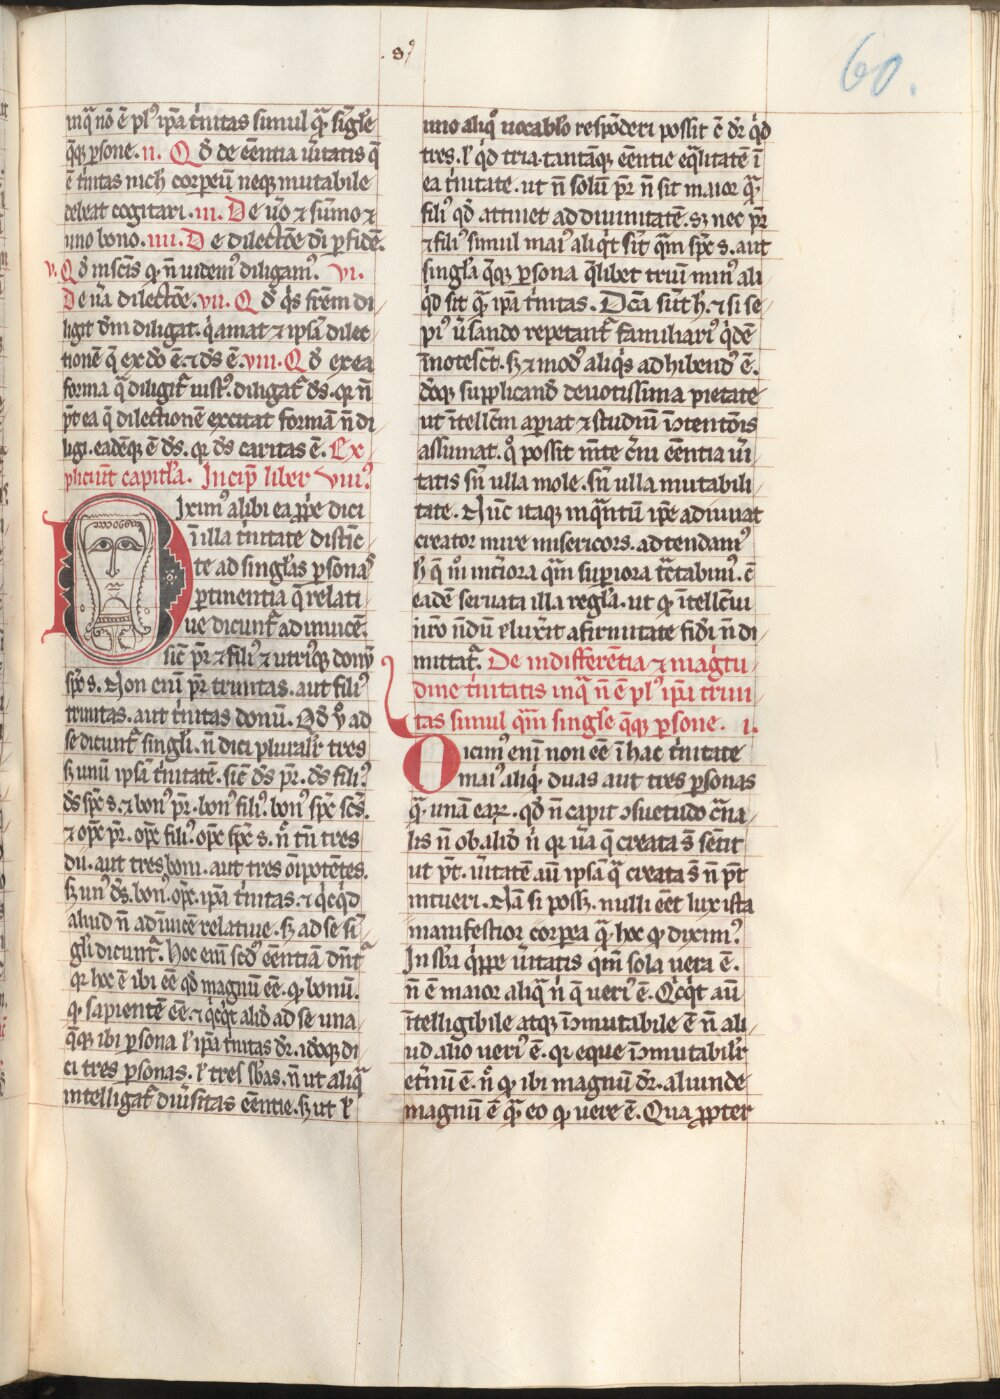 .8ꝰ
60.
inq̄ nō ē plꝰ ip̄a t̓nitas simul qͣ̄ sīgl̓e
q̄qꝫ ꝑsone. ii. Qd̓ de ēentia v̓itatis q̄
ē t̓nitas nich̓ corpeū neqꝫ mutabile
debeat cogitari. iii. De v̓o ⁊ sūmo ⁊
uno bono. iiii. De dilectōe dī ꝑ fidē.
v. Qd̓ insciīs qꝫ n̄ uidemꝰ diligamꝰ. vi.
De ūa dilectōe. vii. Qd̓ q̓s fr̄em di
ligit dm̄ diligat. q̓ amat ⁊ ipsā dilec
tionē q̄ ex do ē. ⁊ dꝰ ē. viii. Qd̓ ex ea
forma q̄ diligit̄ iustꝰ diligat̄ ds̄. qr n̄
p̄t ea q̄ dilectionē excitat formā n̄ di
ligi. eadēqꝫ ē ds̄. qr ds̄ caritas ē. Ex
pliciūt capitl̓a. Incip̄ liber viiiꝰ.
Diximꝰ alibi ea ꝓp̓e dici
ī illa t̓nitate distīc
te ad singl̓as ꝑsonas
ꝑtinentia q̄ relati
ue dicunt̄ ad inuicē.
sic̄ pr̄ ⁊ filiꝰ ⁊ utriꝰqꝫ donū
sp̄c s. Non eni pr̄ trinitas. aut filiꝰ
trinitas. aut t̓nitas donū. Qd̓ v̓o ad
se dicunt̄ singl̓i. n̄ dici plural̓r tres
sꝫ unū ipsā t̓nitatē. sic̄ ds̄ pr̄. ds̄ filiꝰ.
ds̄ sp̄c s. ⁊ bonꝰ pr̄. bonꝰ filiꝰ. bonꝰ sp̄c sc̄s.
⁊ op̄c pr̄. op̄c filiꝰ. op̄c sp̄c s. n̄ tn̄ tres
dii. aut tres boni. aut tres oīpotētes.
sꝫ unꝰ ds̄. bonꝰ. op̄c. ip̄a t̓nitas. ⁊ q̓cq̓d
aliud n̄ ad īuicē relatiue. sꝫ ad se si
gl̓i dicunt̄. Hoc eni scd̓ ēentiā dn̄t̄
qr hoc ē ibi ēe qd̓ magnū ēe. qꝫ bonū.
qꝫ sapientē ēe. ⁊ q̓cq̓t aliud̓ ad se una
q̄qꝫ ibi ꝑsona l̓ ip̄a t̓nitas dr̄. ido̓qꝫ di
ci tres ꝑsonas. l̓ tres sb̄as. n̄ ut aliq̄
intelligat̄ diu̓sitas ēentie. sꝫ ut l̓
uno aliqͦ uocabl̓o respōderi possit ē dr̄ q̓d
tres. l̓ q̓d tria. tantāqꝫ ēentie eq̄litatē ī
ea t̓nitate. ut n̄ solū pr̄ n̄ sit maior qͣ̄
filiꝰ qd̓ attinet ad diuinitatē. sꝫ nec pr̄
⁊ filiꝰ simul maiꝰ aliq̓t sīt qͣ̄m sp̄c s. aut
singl̓a q̄qꝫ ꝑsona q̄libet triū minꝰ ali
q̓d sit qͣ̄ ip̄a t̓nitas. Dc̄a sūt h̓. ⁊ si se
piꝰ v̓sando repetant̄ familiariꝰ q̓dē
īnotesc̄t. sꝫ ⁊ modꝰ aliq̓s adhibendꝰ ē.
do̓qꝫ supplicand̓ deuotissima pietate
ut ītellcm̄ aꝑiat ⁊ studiū ītentōis
assumat. qͦ possit mēte c̓ni ēentia v̓i
tatis sn̄ ulla mole. sn̄ ulla mutabili
tate. Nūc itaqꝫ inqͣ̄ntū ip̄e adiuuat
creator mire misericors. adtendamꝰ
h̓ q̄ mͦ inťiora qͣ̄m suꝑiora tͣctabimꝰ. c̄
eadē seruata illa regl̓a. ut qꝫ ītellcūi
nr̄o n̄dū eluxit a firmitate fidi n̄ di
mittat̄. De indifferētia ⁊ magtu
dine t̓nitatis inq̄ n̄ ē plꝰ ip̄a trini
tas simul qͣ̄m singl̓e q̄qꝫ ꝑsone. i.
Dicimꝰ eni non ēe ī hac t̓nitate
maiꝰ aliq̓. duas aut tres ꝑsonas
qͣ̄ unā eaꝝ. qd̓ n̄ capit ↄsuetudo c̄na
lis n̄ ob aliud̓ n̓ qr v̓a q̄ creata s̄ sētit
ut p̄t. v̓itatē aū ipsā qͣ creata s̄ n̄ p̄t
intueri. Nā si possꝫ. nulli ēet lux ista
manifestior corpea qͣ̄ hoc qꝫ diximꝰ.
In sb̄a q̓ppe v̓itatis qm̄ sola uera ē.
n̄ ē maior aliq̄ n̓ q̄ ueriꝰ ē. Qicq̓t aū
ītelligibile atqꝫ īmutabile ē n̄ ali
ud alio ueriꝰ ē. qr eque īmutabil̓r
et̓nū ē. n̄ qꝫ ibi magnū dr̄. aliunde
magnū ē qͣ̄ eo qꝫ uere ē. Qua ꝓpter